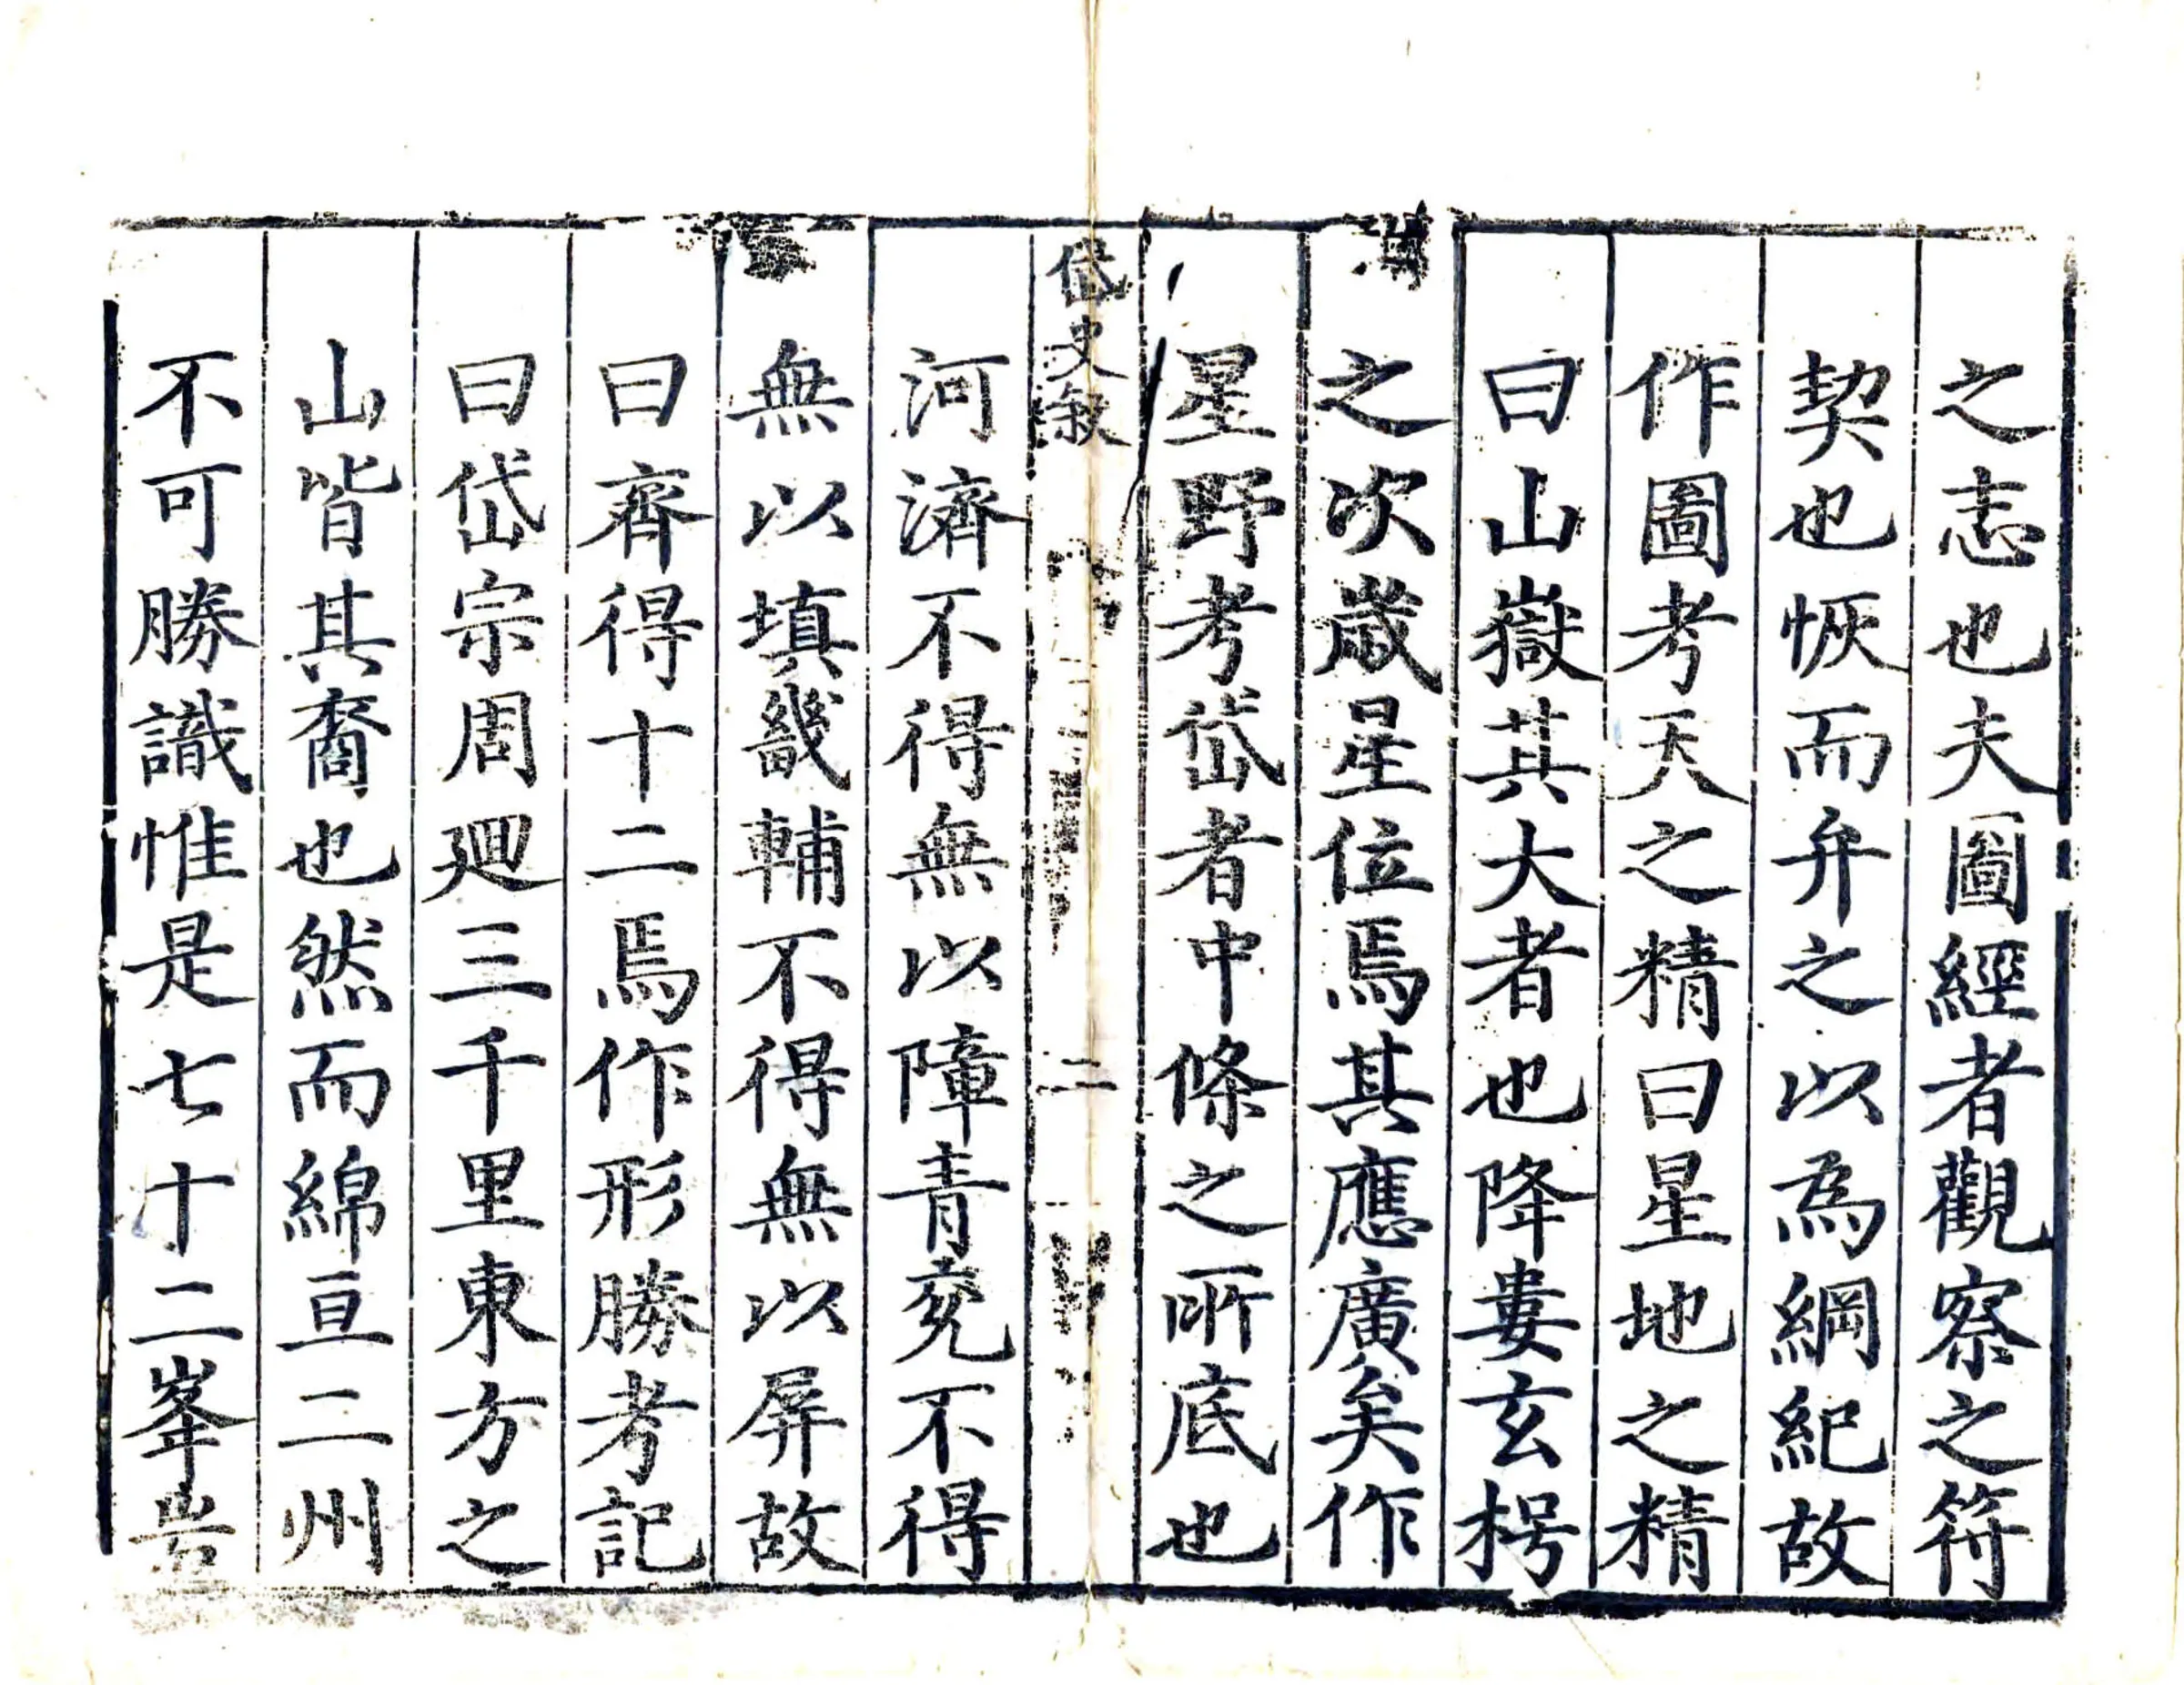 之志也夫圖經者觀察之符
契也恢而弁之以為綱紀故
作圖考天之精曰星地之精
曰山嶽其大者也降婁玄枵
之次歲星位焉其應廣矣作
星野考岱者中條之所底也
岱史敘
二
河濟不得無以障青兗不得
無以填畿輔不得無以屏故
曰齊得十二焉作形勝考記
曰岱宗周廻三千里東方之
山皆其裔也然而綿亘二州
不可勝識惟是七十二峯